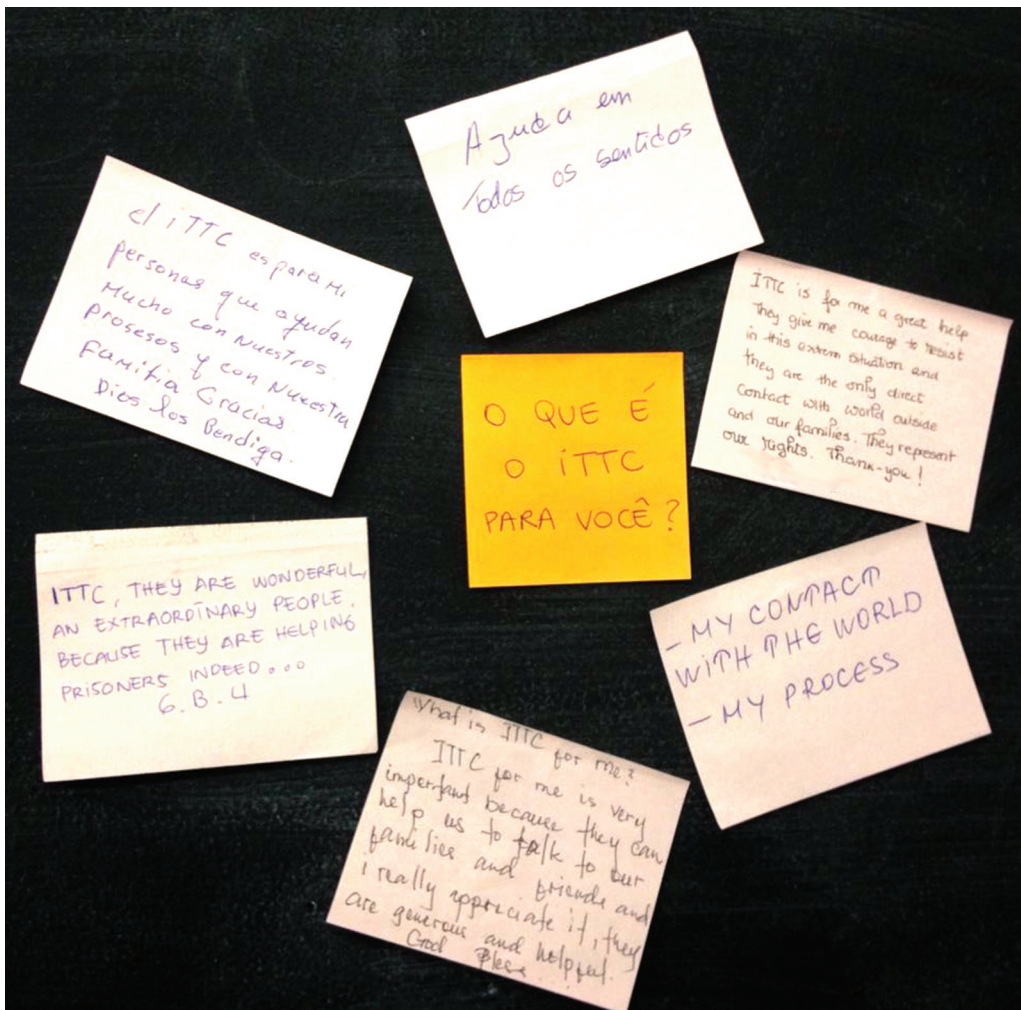 Ajuda em
Todos os sentidos
el iTTC es para Mi
personas que ayudan
Mucho con Nuestros
prosesos y con Nuestra
Familia Gracias
Dios los Bendiga.
ITTC is for me a great help
They give me courage to resist
in this extrem situation and
they are the only direct
contact with world outside
and our families. They represent
our rights. Thank-you!
O QUE É
O iTTC
PARA VOCÊ?
ITTC, THEY ARE WONDERFUL,
AN EXTRAORDINARY PEOPLE.
BECAUSE THEY ARE HELPING
PRISONERS INDEED...
G.B.4
- MY CONTACT
WITH THE WORLD
- MY PROCESS
What is ITTC for me?
ITTC for me is very
important because they can
help us to talk to our
families and friends and
I really appriciate it, they
are generous and helpful.
God Bless